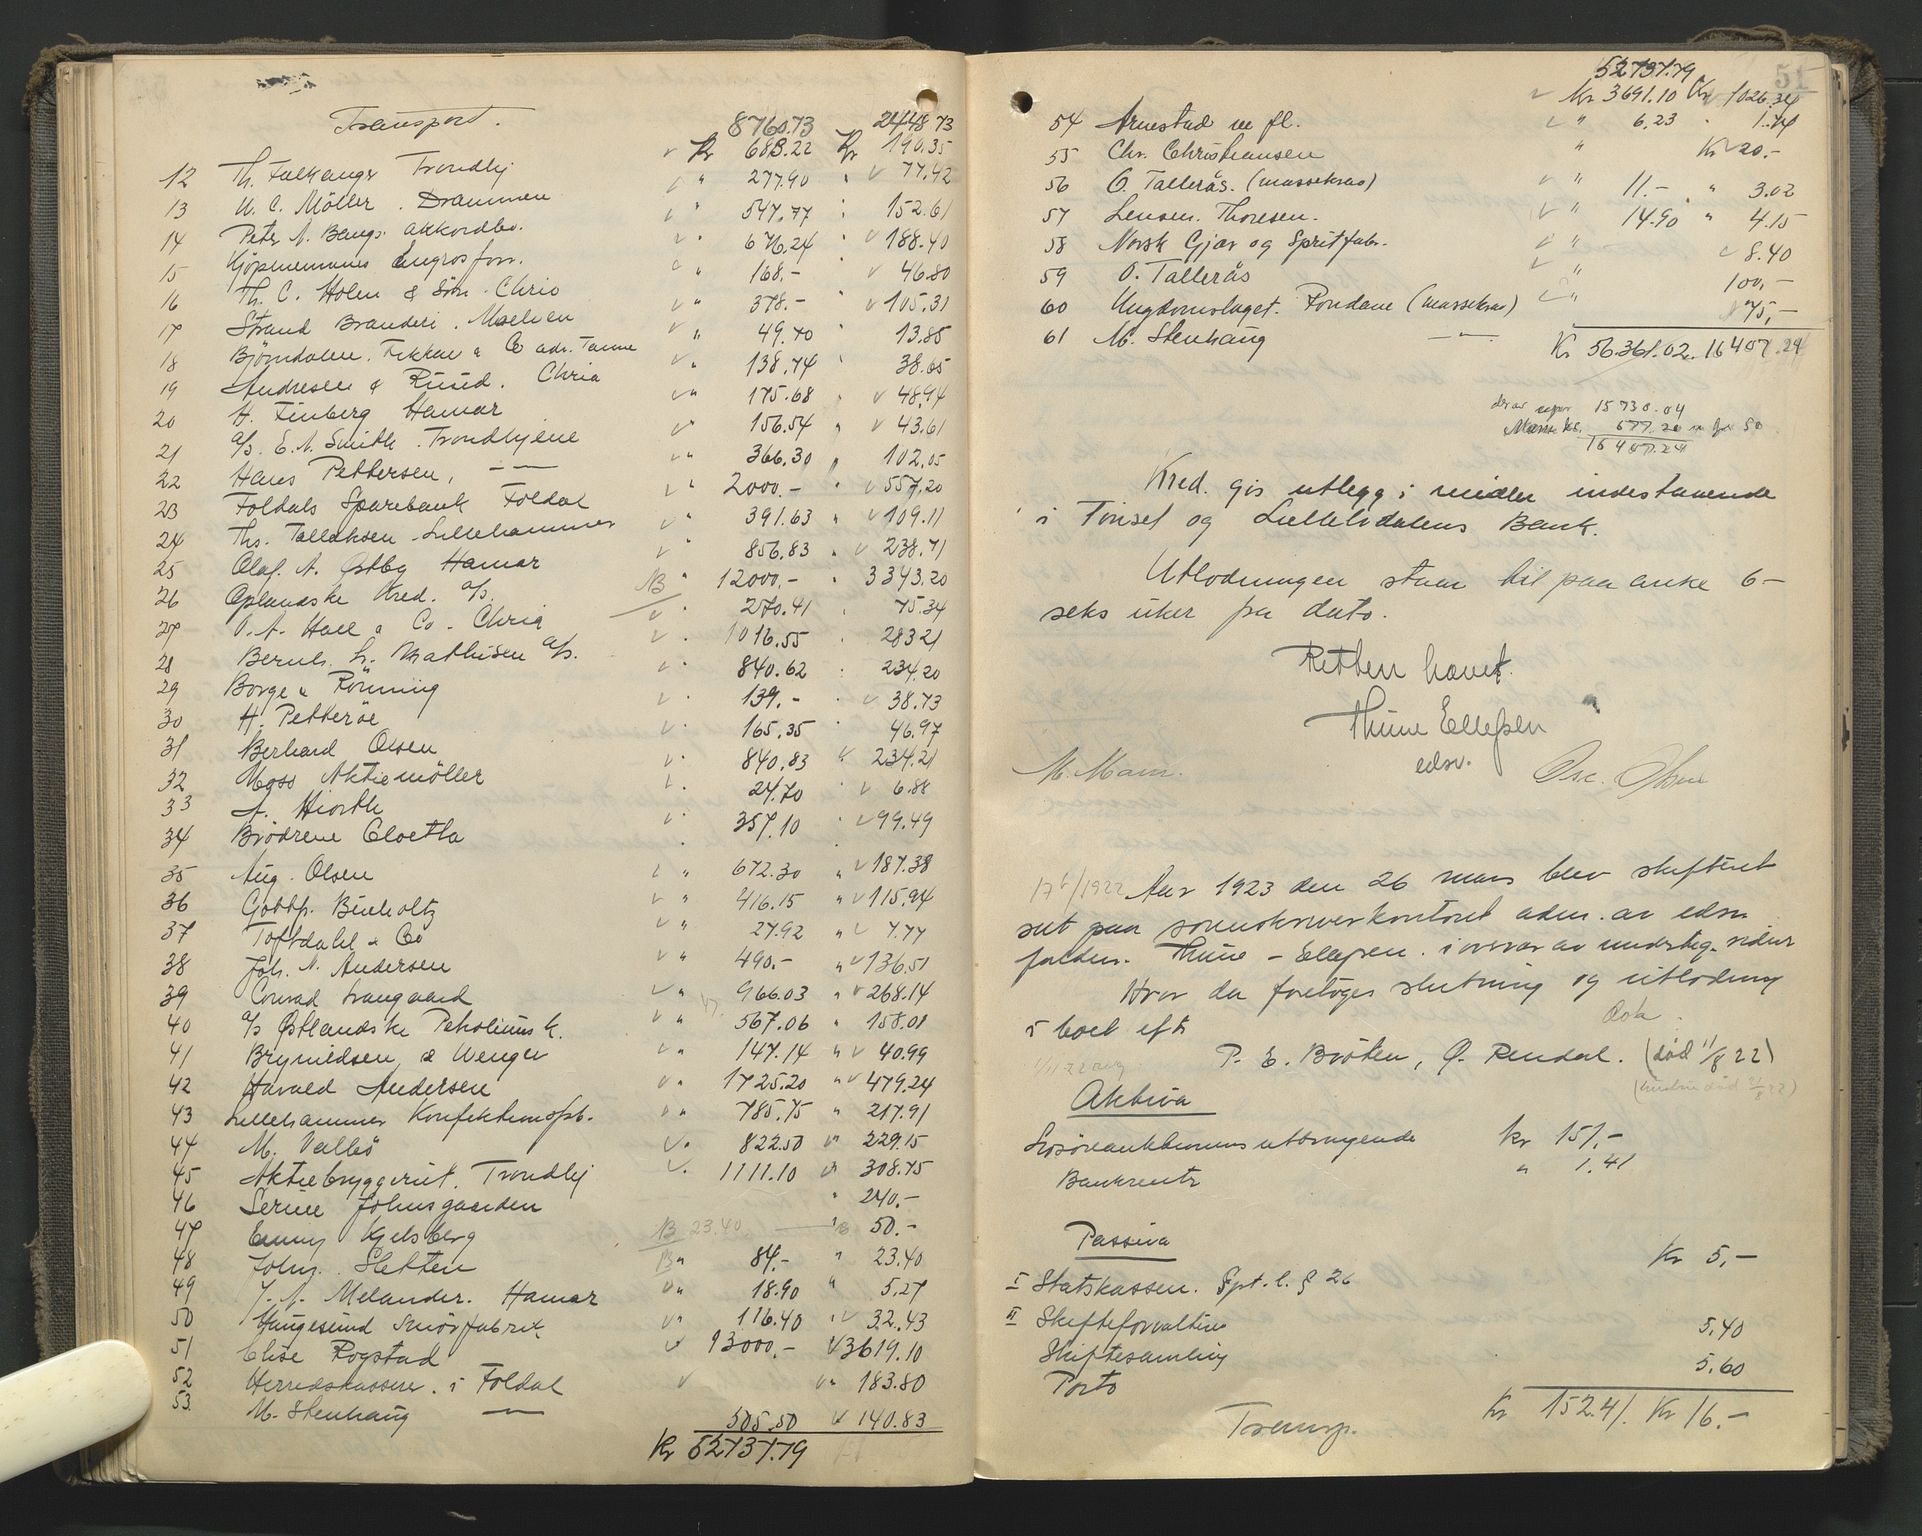 Transport. 8760.73 2448.73
12 Th. Falkanger Trondhj Kr 683.22 Kr 190.35
13 N. C. Möller . Drammen " 277.90 " 77.42
14 Peter N. Bangs. akkordbo. " 547.77 " 152.61
15 Kjöpmennenes Engrosforr. " 676.24 " 188.40
16 Th. C. Holen & Sön . Chria " 168.- " 46.80
17 Strand Brænderi . Moelven " 378.- " 105.31
18 Björndalen, & Co adr. " 49.70 " 13.85
19 Andresen & Ruud . Chria " 138.74 38.65
20 H. Finberg Hamar " 175.68 " 48.94
21 a/s. E. A. Smith . Trondhjem " 156.54 " 43.61
22 Hans Pettersen, - — " 366.30 " 102.05
23 Foldals Sparebank Foldal " 2000.- " 557.20
24 Ths. Tallaksen . Lillehammer " 391.63 " 109.11
25 Olaf. A. Østby Hamar 856.83 " 238.71
26 Oplandske Kred. a/s. B " 12000.- " 3343.20
27 O. A. Hall & Co . Chria " 270.41 75.34
28 Bernh. L. Mathisen a/s. 1016.55 283.21
29 Borge & Rönning 840.62 234.20
30 H. Petteröe 139.- 38.73
31 Berhard Olsen 165.35 46.97
32 Moss Aktiemöller 840.83 " 234.21
33 A. Hiorth 24.70 6.88
34 Brödrene Cloetta 357.10 99.49
35 Aug. Olsen " 672.30 " 187.38
36 Gottfr. Buholtz " 416.15 " 115.94
37 Toftdahl & Co " 27.92 " 7.77
38 Joh. N. Andersen " 490.- " 136.51
39 Conrad Langaard " 966.03 " 268.14
40 a/s Østlandske Petroleumsk. " 567.06 " 158.01
41 Brynildsen & Wenger " 147.14 " 40.99
42 Harald Andersen " 1725.20 " 479.24
43 Lillehammer Konfektionsfab. " 785.75 " 217.91
44 M. Valbö 822.50 " 229.15
45 Aktiebryggeriet. Trondhj 1111.10 " 308.75
46 Serine Johnsgaarden " 240.-
47 Enny Kjelsberg B 23.40 — " 50.-
48 Johs. Sletten B " 84.- " 23.40
49 J. A. Melander. Hamar " 18.90 " 5.27
50 Haugesund Smörfabrik " 116.40 " 32.43
51 Elise Rogstad 13000.- 3619.10
52 Herredskasserer. i Foldal " 183.80
53. M. Stenhaug — 505.50 140.83
Kr 52737.79
52737.79 51
54 Arnestad m fl. Kr 3691.10 Kr 1026.34
55 Chr. Christiansen " 6.23 " 1.74
56 O. Tallerås. (massekrav) " Kr 20.-
57 Lensm. Thoresen. " 11.- " 3.02
58 Norsk Gjær og Spritfabr. " 14.90 " 4.15
59 O. Tallerås " 8.40
60 Ungdomslaget. Rondane (massekrav) " 100,-
61 M. Stenhaug — 75,-
Kr 56.361.02. 16407.24
15730.04
Masse kr. 677.20 50
16407.24
Kred. gis utlegg i midler indestaaende
i Tönset og Lilleelvdalens Bank.
Utlodningen staar til paaanke 6-
seks uker fra dato.
Retten hævet.
Thune Ellefsen
edsv.
M. Moan. Osc. Olsen
17 6/1922 Aar 1923 den 26 mars blev skifteret
sat paa sorenskriverkontoret adm. av edsv.
fuldm. Thune - Ellefsen. i overvær av underteg. vidner
Hvor da foretoges slutning og utlodning
i boet eft.
P. E. Bröten, Ø. Rendal. (död 11/8 22)
Aktiva
Lösöreauktionens utbringende kr 151,-
Bankrente " 1.41
Passiva
I Statskassen. Spt. l. § 26 Kr 5,-
II Skifteforvaltere
Skiftesamling 5,40
Porto 5,60
Transp. Kr 152.41. Kr 16.-